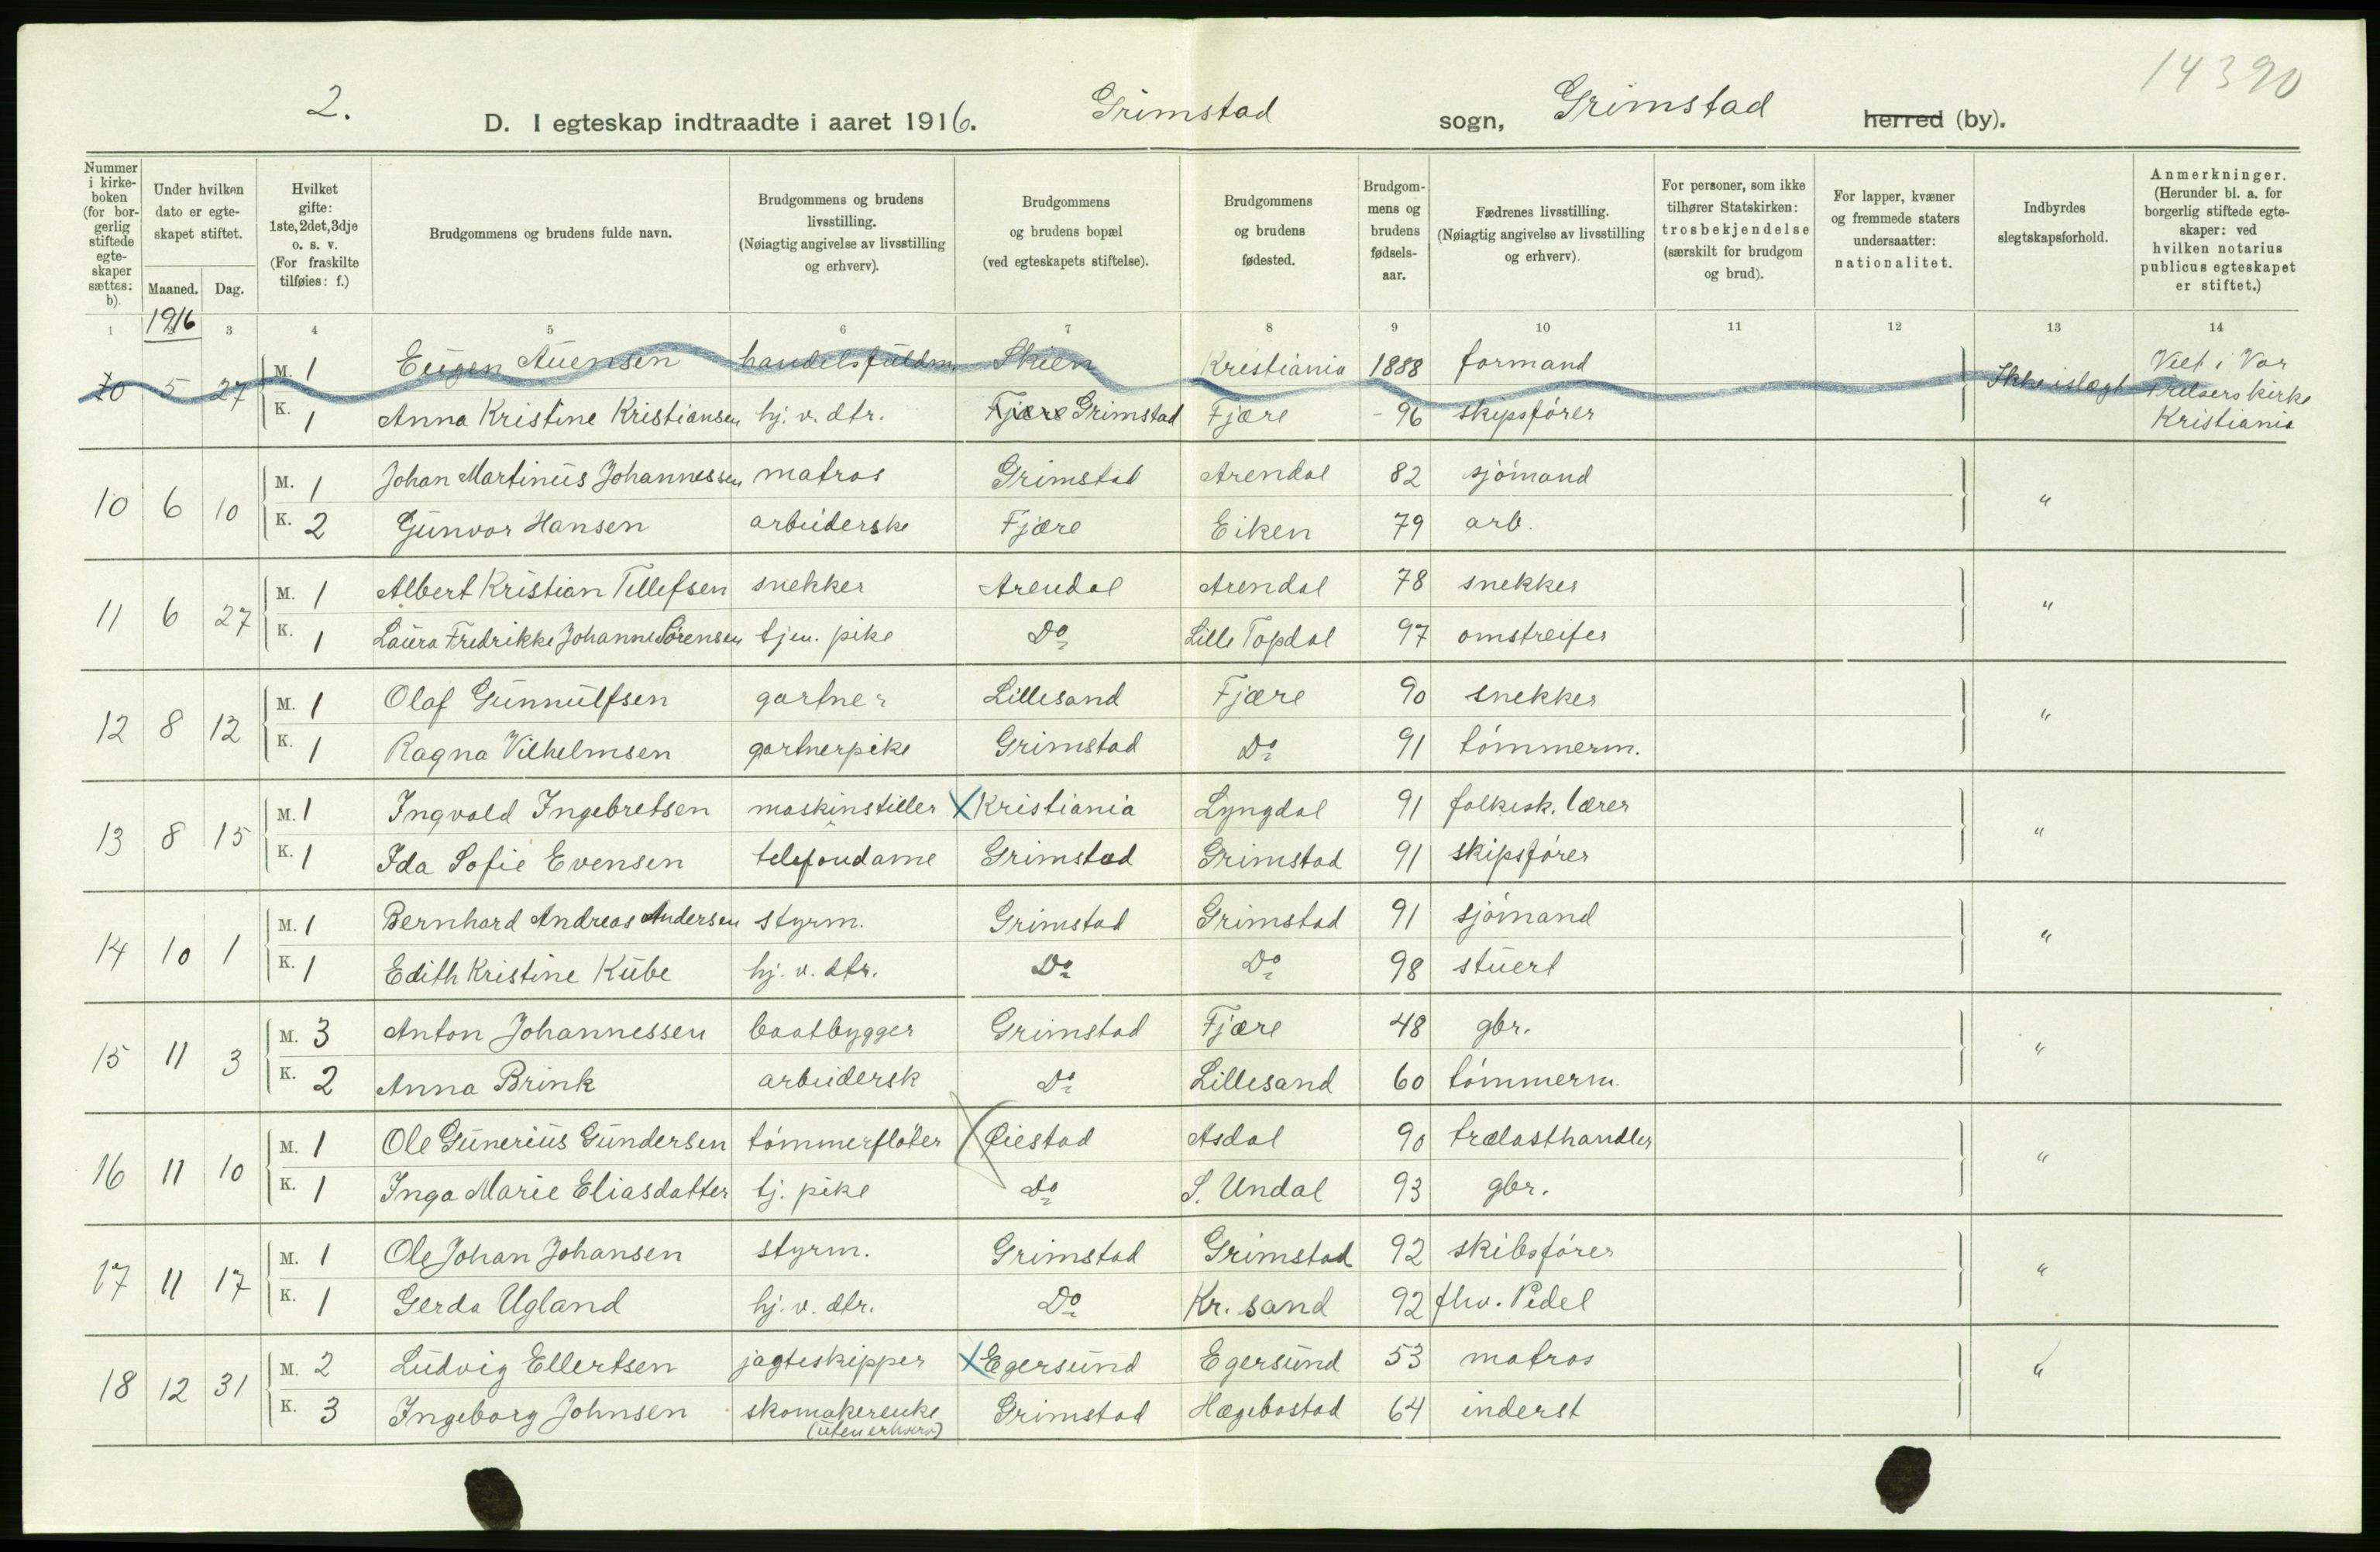 14390
2. D. I egteskap indtraadte i aaret 1916. Grimstad sogn, Grimstad herred (by).
Nummer i kirkeboken (for borgerlig stiftede egteskaper sættes: b). | Under hvilken dato er egteskapet stiftet. Maaned. Dag. | Hvilket gifte: 1ste, 2det, 3dje o. s. v. (For fraskilte tilføies: f.) | Brudgommens og brudens fulde navn. | Brudgommens og brudens livsstilling. (Nøiagtig angivelse av livsstilling og erhverv). | Brudgommens og brudens bopæl (ved egteskapets stiftelse). | Brudgommens og brudens fødested. | Brudgommens og brudens fødselsaar. | Fædrenes livsstilling. (Nøiagtig angivelse av livsstilling og erhverv). | For personer, som ikke tilhører Statskirken: trosbekjendelse (særskilt for brudgom og brud). | For lapper, kvæner og fremmede staters undersaatter: nationalitet. | Indbyrdes slegtskapsforhold. | Anmerkninger. (Herunder bl. a. for borgerlig stiftede egteskaper: ved hvilken notarius publicus egteskapet er stiftet.)
1 1916 3 4 5 6 7 8 9 10 11 12 13 14
10 5 27 M. 1 Eugen Auensen handelsfuldm. Skien Kristiania 1888 formand Ikke i slægt Viet i Vor Frelsers kirke Kristiania
K. 1 Anna Kristine Kristiansen hj. v. dtr. Fjære Grimstad Fjære - 96 skipsfører
10 6 10 M. 1 Johan Martinus Johannessen matros Grimstad Arendal 82 sjømand "
K. 2 Gunvor Hansen arbeiderske Fjære Eiken 79 arb.
11 6 27 M. 1 Albert Kristian Tellefsen snekker Arendal Arendal 78 snekker "
K. 1 Laura Fredrikke Johanne Sørensen tjen. pike Do Lille Topdal 97 omstreifer
12 8 12 M. 1 Olaf Gunnulfsen gartner Lillesand Fjære 90 snekker "
K. 1 Ragna Vilhelmsen gartnerpike Grimstad Do 91 tømmerm.
13 8 15 M. 1 Ingvald Ingebretsen maskinstiller X Kristiania Lyngdal 91 folkesk. lærer "
K. 1 Ida Sofie Evensen telefondame Grimstad Grimstad 91 skipsfører
14 10 1 M. 1 Bernhard Andreas Andersen styrm. Grimstad Grimstad 91 sjømand "
K. 1 Edith Kristine Kube hj. v. dtr. Do Do 98 stuert
15 11 3 M. 3 Anton Johannessen baatbygger Grimstad Fjære 48 gbr. "
K. 2 Anna Brink arbeidersk Do Lillesand 60 tømmerm.
16 11 10 M. 1 Ole Gunerius Gundersen tømmerfløter Øiestad Asdal 90 trælasthandler "
K. 1 Inga Marie Eliasdatter tj. pike Do S. Undal 93 gbr.
17 11 17 M. 1 Ole Johan Johansen styrm. Grimstad Grimstad 92 skibsfører "
K. 1 Gerda Ugland hj. v. dtr. Do Kr. sand 92 fhv. Pedel
18 12 31 M. 2 Ludvig Ellertsen jagteskipper X Egersund Egersund 53 matros "
K. 3 Ingeborg Johnsen skomakerenke (uten erhverv) Grimstad Hægebostad 64 inderst